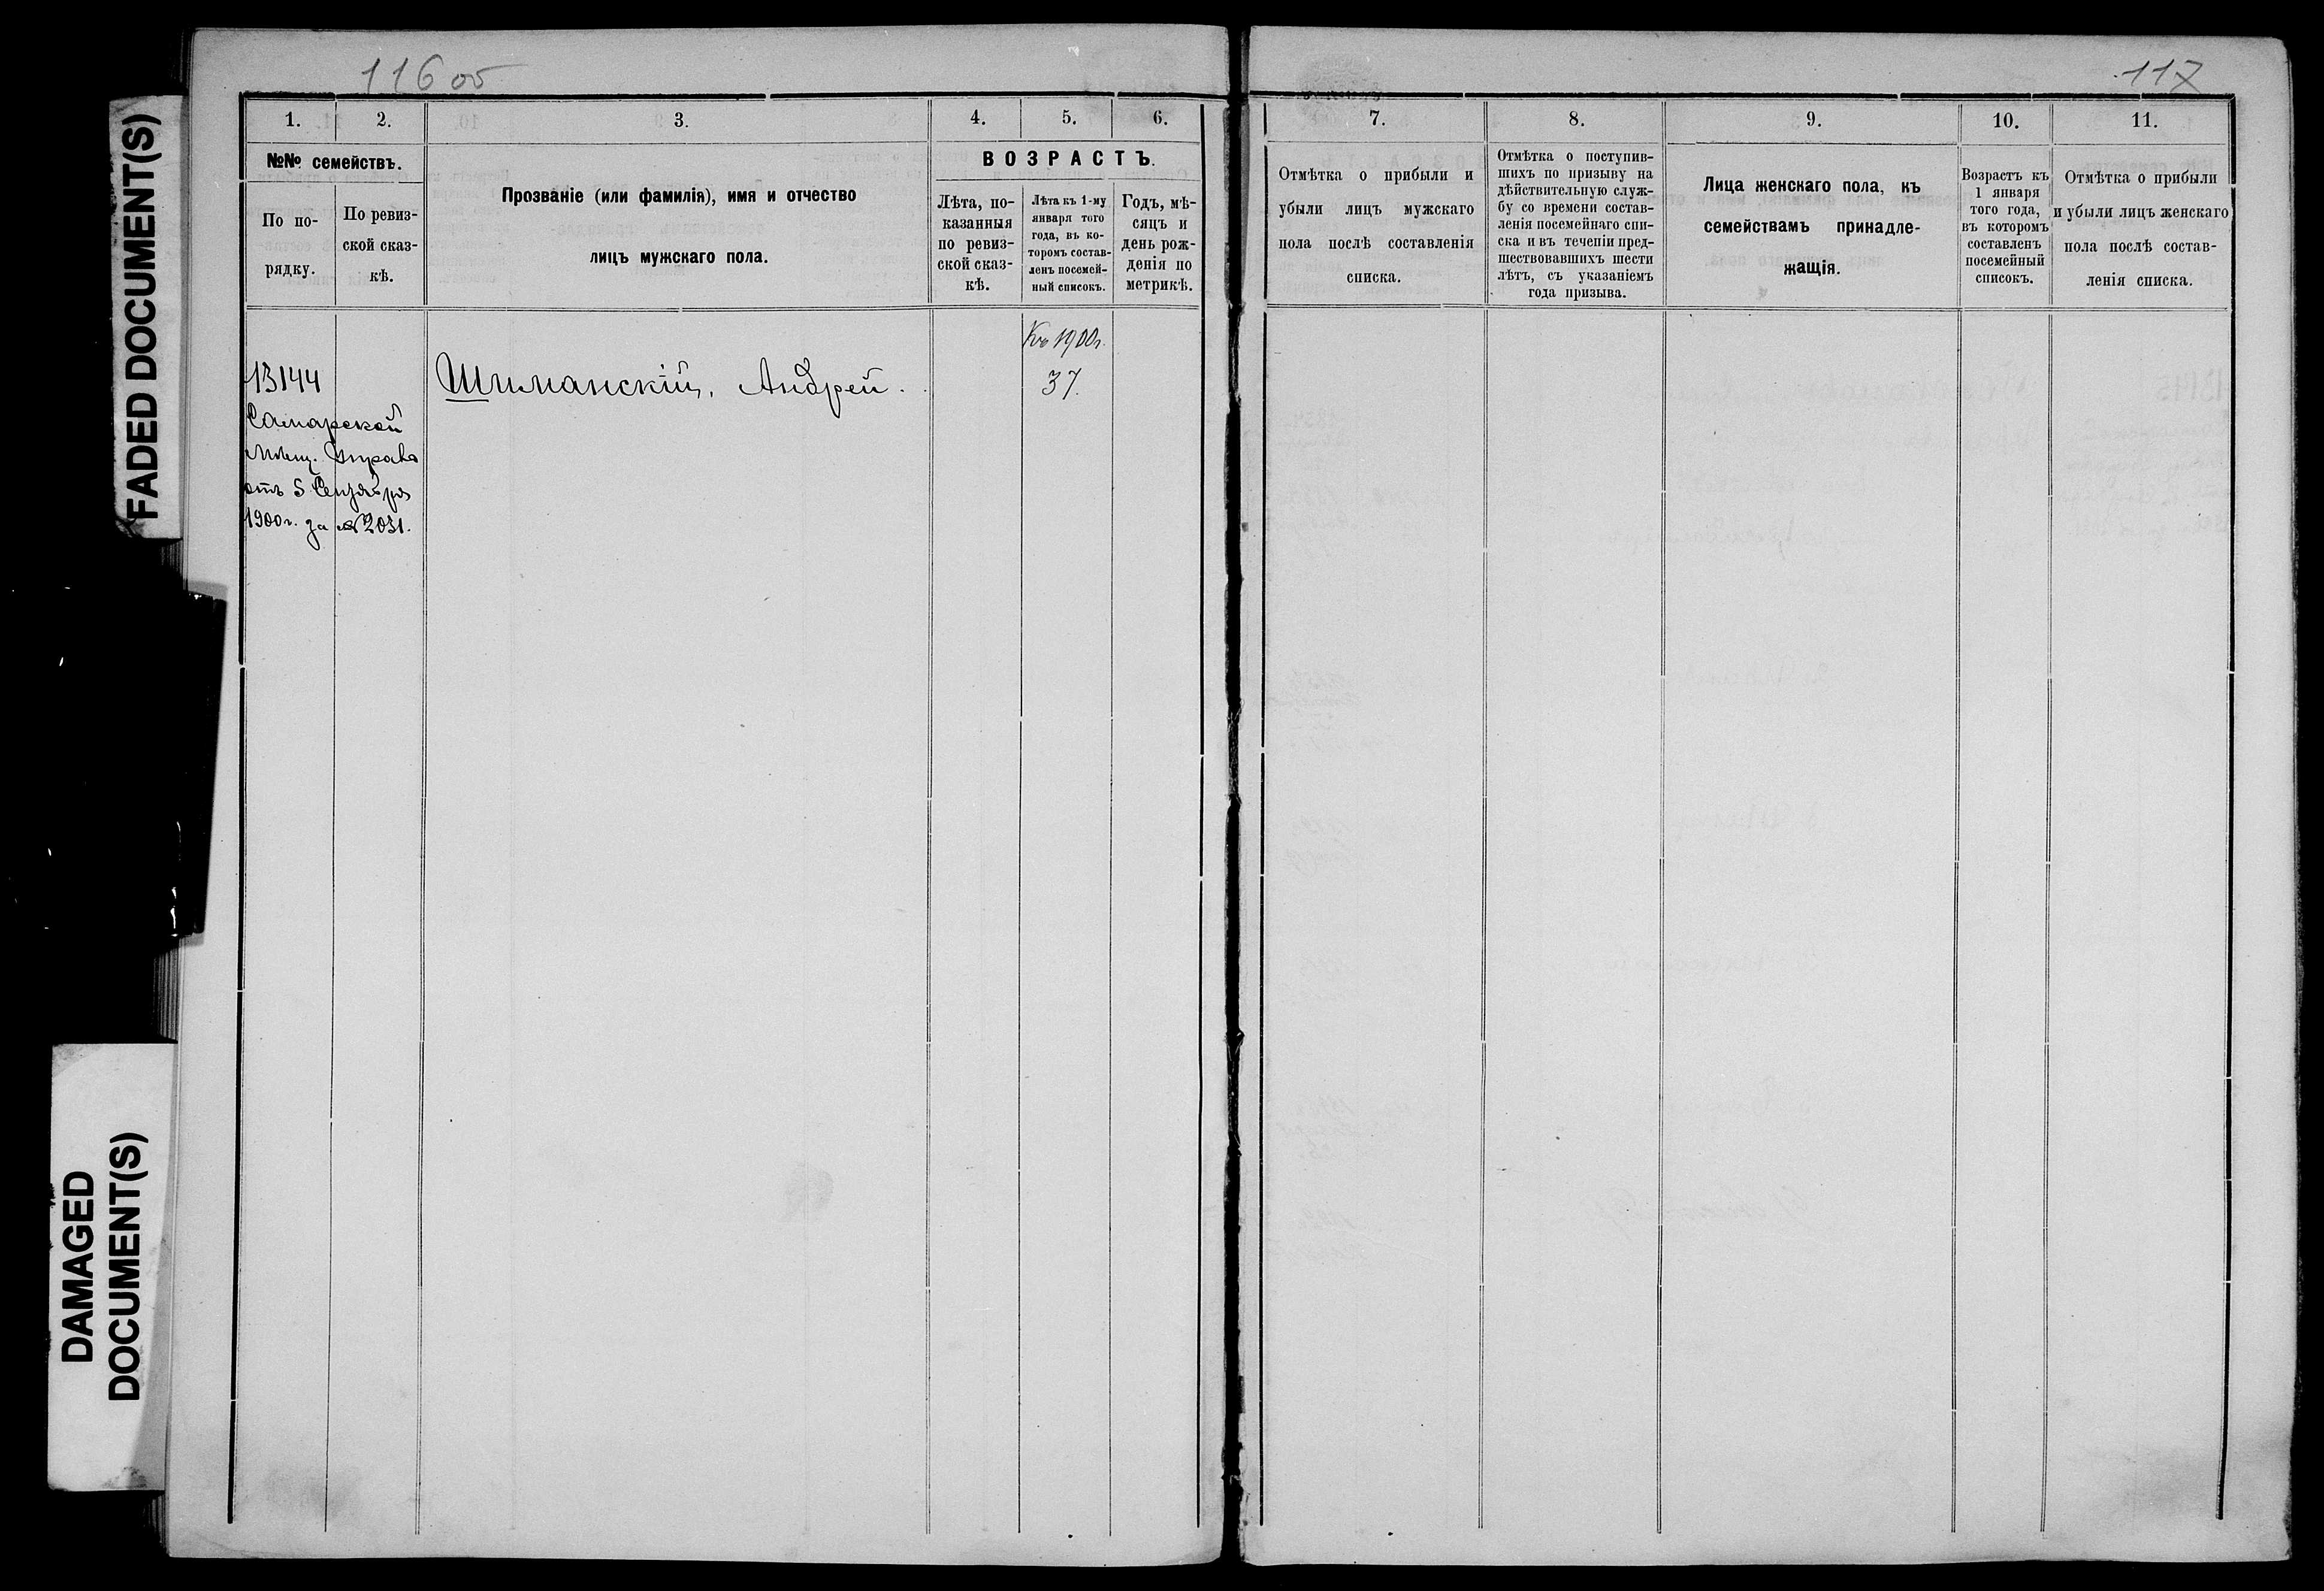 FADED DOCUMENT(S)
DAMAGED
DOCUMENT(S)
116 об
1. 2. 3. 4. 5. 6.
№№ семействъ.
По по-
рядку.
По ревиз-
ской сказ-
кѣ.
Прозваніе (или фамилія), имя и отчество
лицъ мужскаго пола.
ВОЗРАСТЪ.
Лѣта, по-
казанныя
по ревиз-
ской сказ-
кѣ.
Лѣта къ 1-му
января того
года, въ ко-
торомъ состав-
ленъ посемей-
ный списокъ.
Годъ, мѣ-
сяцъ и
день рож-
денія по
метрикѣ.
Къ 1900г.
13144 Шиманскій, Андрей. 37.
Самарской
Мѣщ. Управа
отъ 5 Сентября
1900г. за № 2031.
117
7. 8. 9. 10. 11.
Отмѣтка о прибыли и
убыли лицъ мужскаго
пола послѣ составленія
списка.
Отмѣтка о поступив-
шихъ по призыву на
дѣйствительную служ-
бу со времени состав-
ленія посемейнаго спи-
ска и въ теченіи пред-
шествовавшихъ шести
лѣтъ, съ указаніемъ
года призыва.
Лица женскаго пола, къ
семействамъ принадле-
жащія.
Возрастъ къ
1 января
того года,
въ которомъ
составленъ
посемейный
списокъ.
Отмѣтка о прибыли
и убыли лицъ женскаго
пола послѣ состав-
ленія списка.